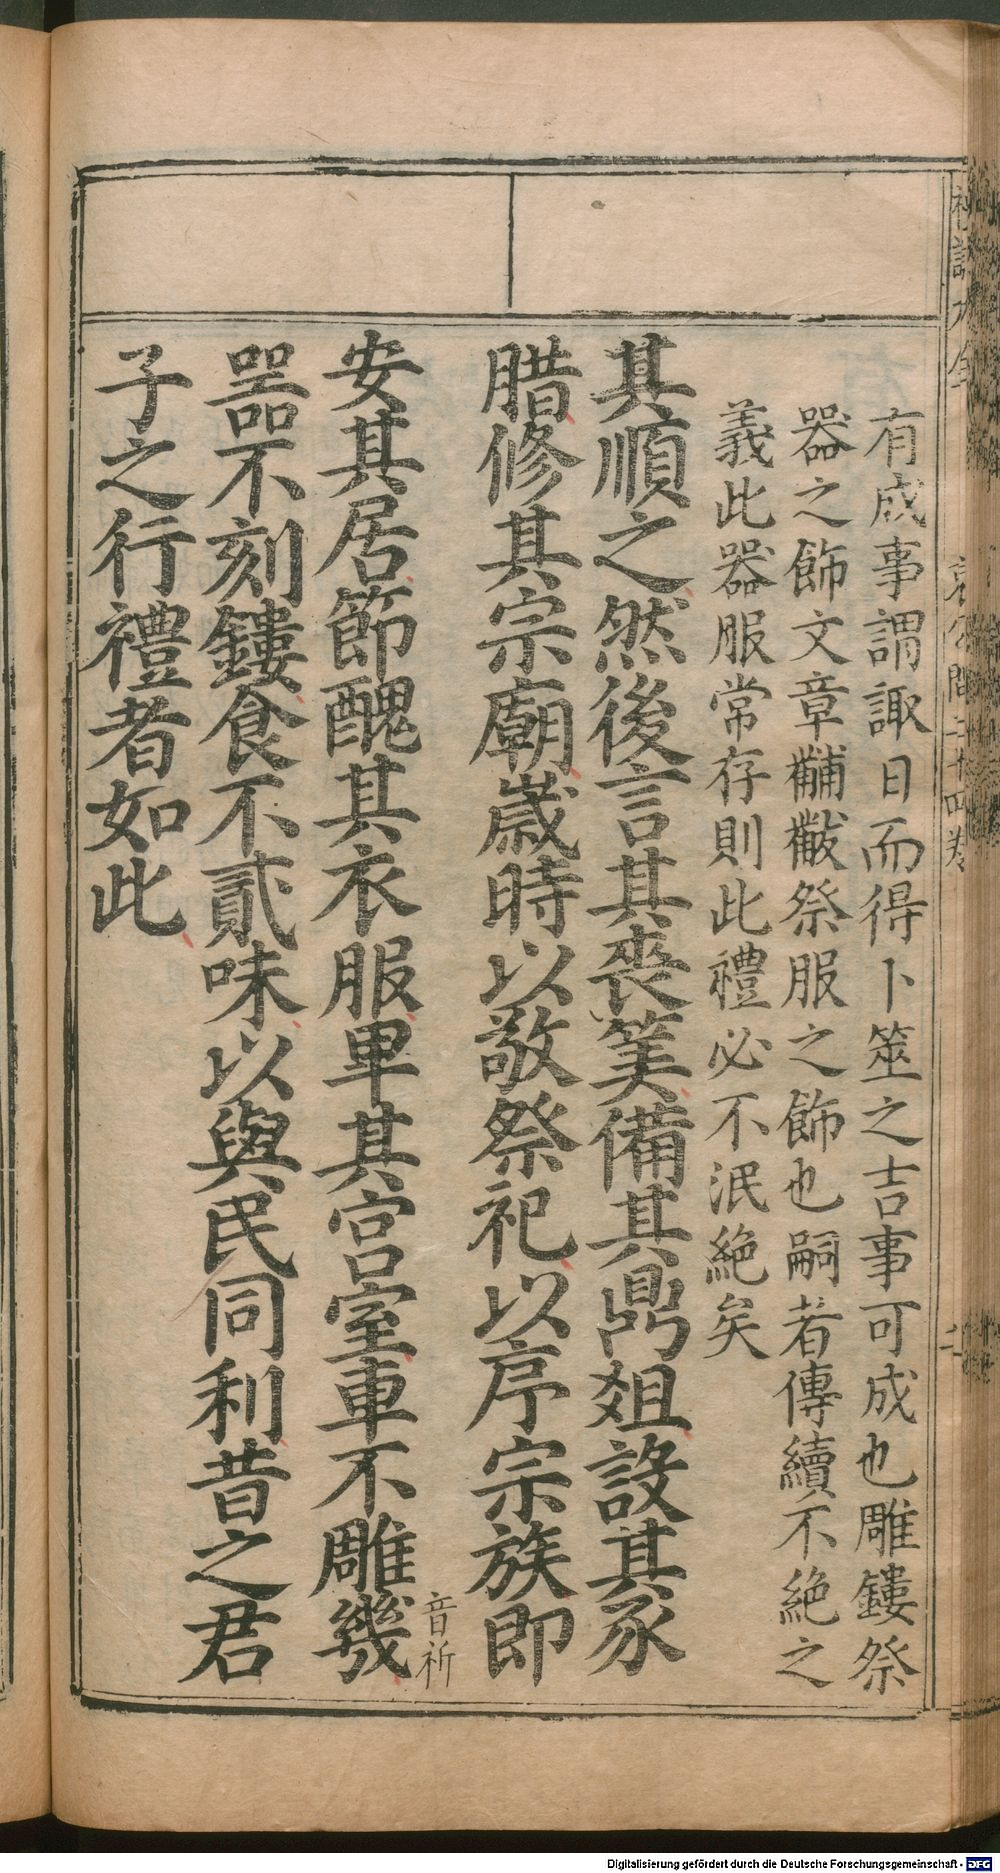 有成事謂諏日而得卜筮之吉事可成也雕鏤祭
器之飾文章黼黻祭服之飾也嗣者傳續不絶之
義此器服常存則此禮必不泯絶矣
其順之然後言其喪筭備其鼎俎設其豕
腊修其宗廟歲時以敬祭祀以序宗族即
安其居節醜其衣服卑其宮室車不雕幾
音祈
噐不刻鏤食不貳味以與民同利昔之君
子之行禮者如此
禮記大全
哀公問二十四卷
二
Digitalisierung gefördert durch die Deutsche Forschungsgemeinschaft - DFG